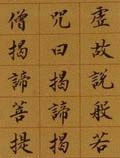 虛故說般若
咒曰揭諦揭
僧揭諦菩提